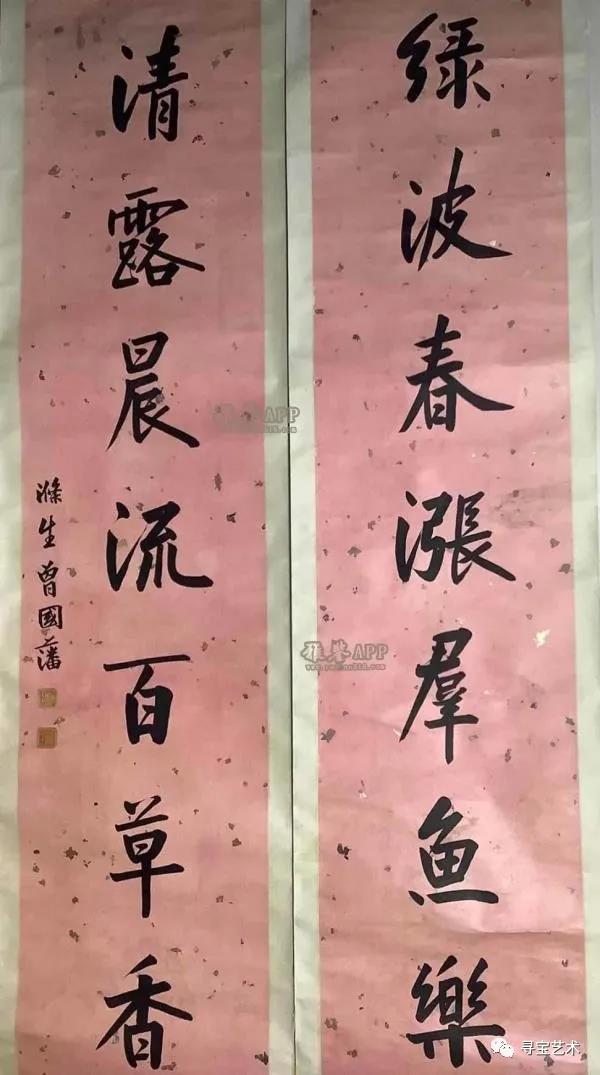 绿波春漲羣魚樂
清露晨流百草香
滌生曾國藩
雅鉴APP
雅鉴APP
寻宝艺术